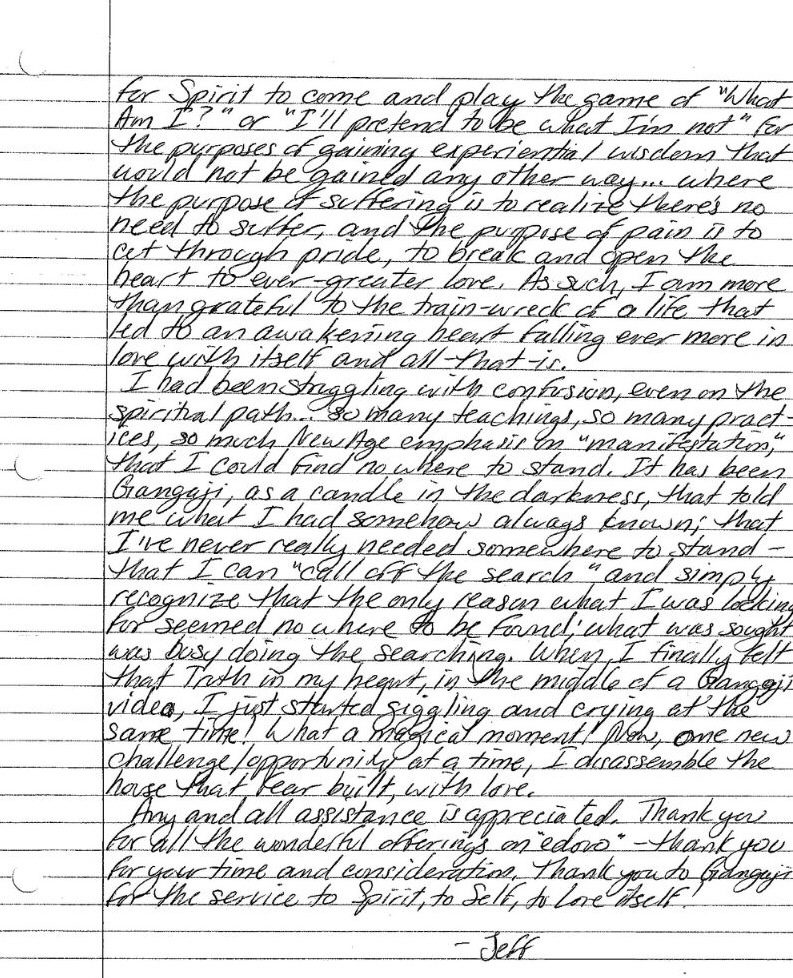 for Spirit to come and play the game of "What
Am I?" or "I'll pretend to be what I'm not" for
the purposes of gaining experiential wisdom that
would not be gained any other way... where
the purpose of suffering is to realize there's no
need to suffer, and the purpose of pain is to
cut through pride, to break and open the
heart to ever-greater love. As such, I am more
than grateful to the train-wreck of a life that
led to an awakening heart falling ever more in
love with itself and all-that-is.
I had been struggling with confusion, even on the
spiritual path... so many teachings, so many pract-
ices, so much New Age emphasis on "manifestation,"
that I could find no where to stand. It has been
Gangaji, as a candle in the darkness, that told
me what I had somehow always known; that
I've never really needed somewhere to stand -
that I can "call off the search" and simply
recognize that the only reason what I was looking
for seemed no where to be found; what was sought
was busy doing the searching. When I finally felt
that Truth in my heart, in the middle of a Gangaji
video, I just started giggling and crying at the
same time! What a magical moment! Now, one new
challenge/opportunity at a time, I disassemble the
house that fear built, with love.
Any and all assistance is appreciated. Thank you
for all the wonderful offerings on "edovo" - thank you
for your time and consideration. Thank you to Gangaji
for the service to Spirit, to Self, to Love itself!
- Jeff